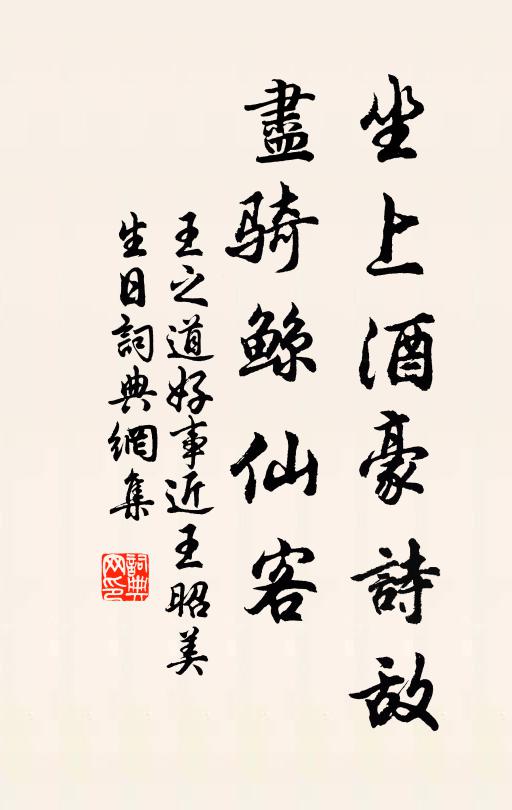 坐上酒豪詩敵
盡骑鲸仙客
王之道好事近王昭美
生日詞典網集
詞典网印